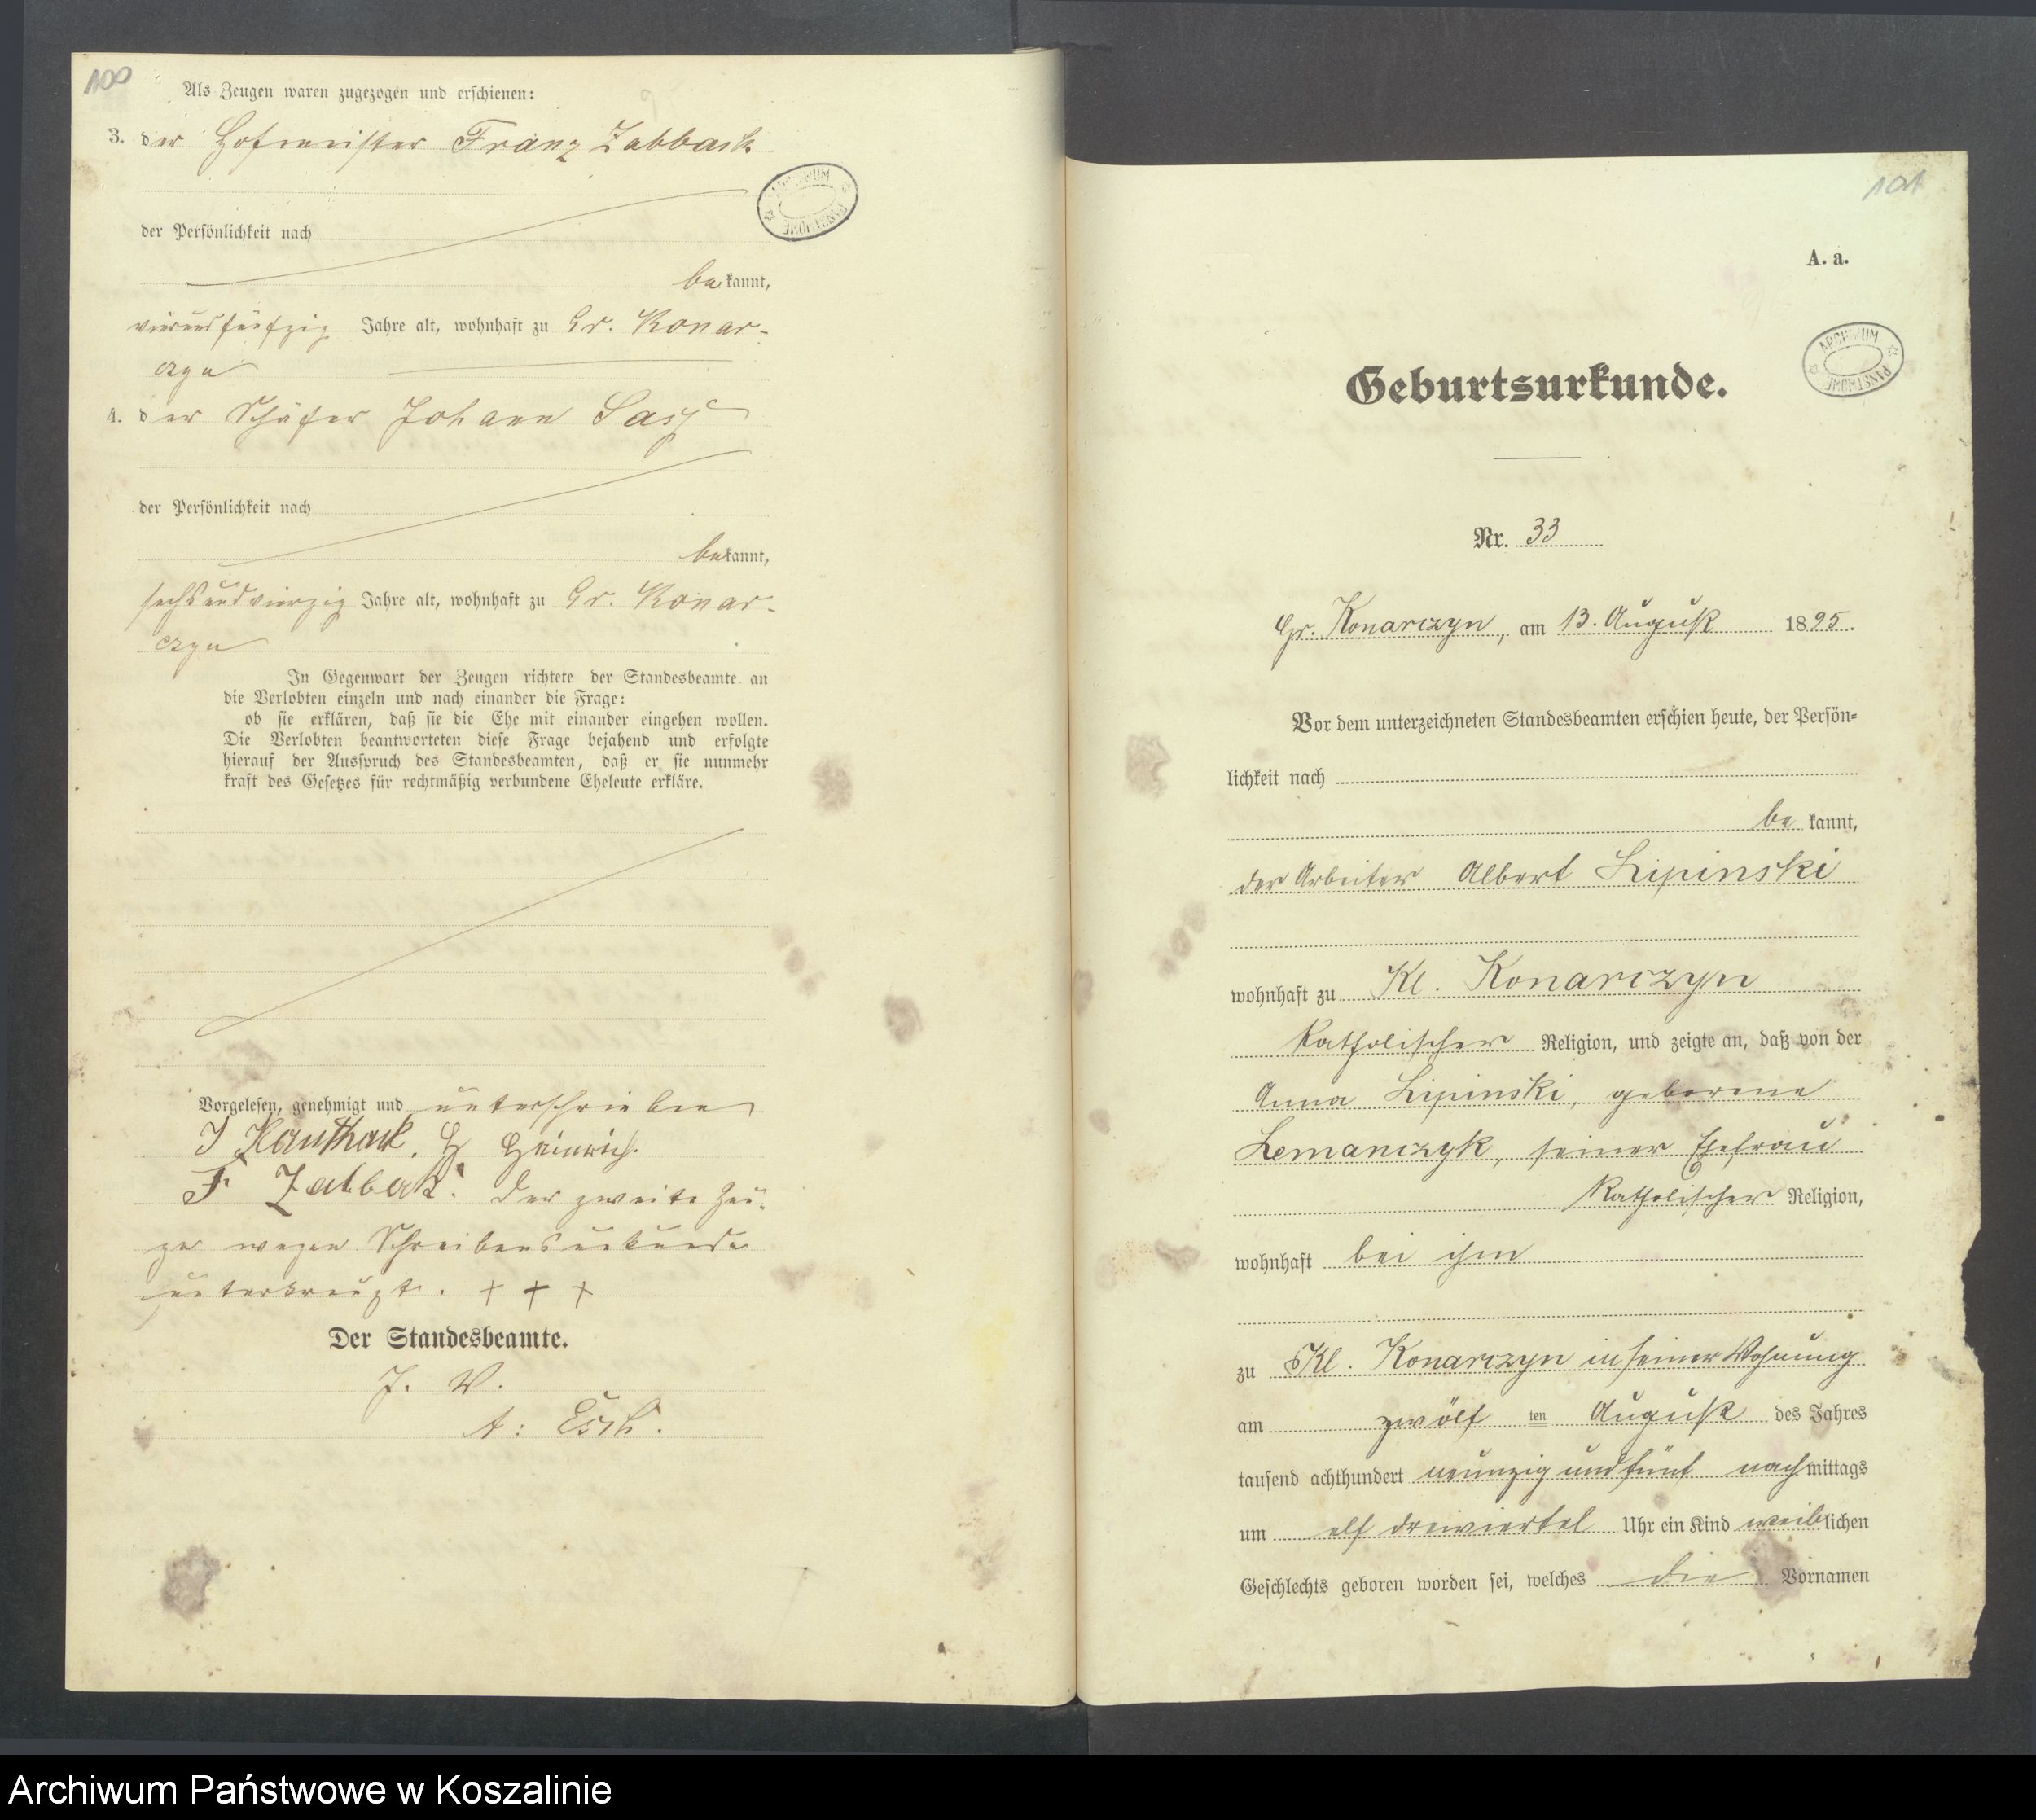 100
Als Zeugen waren zugezogen und erschienen:
3. der Hofmeister Franz Zabback
der Persönlichkeit nach
bekannt,
vierundfünfzig Jahre alt, wohnhaft zu Gr. Konar-
czyn
4. der Schäfer Johann Sass
der Persönlichkeit nach
bekannt,
sechsundvierzig Jahre alt, wohnhaft zu Gr. Konar-
czyn
In Gegenwart der Zeugen richtete der Standesbeamte an
die Verlobten einzeln und nach einander die Frage:
ob sie erklären, daß sie die Ehe mit einander eingehen wollen.
Die Verlobten beantworteten diese Frage bejahend und erfolgte
hierauf der Ausspruch des Standesbeamten, daß er sie nunmehr
kraft des Gesetzes für rechtmäßig verbundene Eheleute erkläre.
Vorgelesen, genehmigt und unterschrieben
J Kauthack. H Heinrich.
F Zabback. Der zweite Zeu-
ge wegen Schreibensunkunde
unterkreuzt. + + +
Der Standesbeamte.
J. V.
A: Esch.
ARCHIWUM PAŃSTWOWE
101
A. a.
ARCHIWUM PAŃSTWOWE
Geburtsurkunde.
Nr. 33
Gr. Konarczyn, am 13. August 1895.
Vor dem unterzeichneten Standesbeamten erschien heute, der Persön-
lichkeit nach
bekannt,
der Arbeiter Albert Lipinski
wohnhaft zu Kl. Konarczyn
katholischer Religion, und zeigte an, daß von der
Anna Lipinski, geborene
Lemanczyk, seiner Ehefrau
katholischer Religion,
wohnhaft bei ihm
zu Kl. Konarczyn in seiner Wohnung
am zwölf ten August des Jahres
tausend achthundert neunzig und fünf nachmittags
um elf dreiviertel Uhr ein Kind weiblichen
Geschlechts geboren worden sei, welches die Vornamen
Archiwum Państwowe w Koszalinie